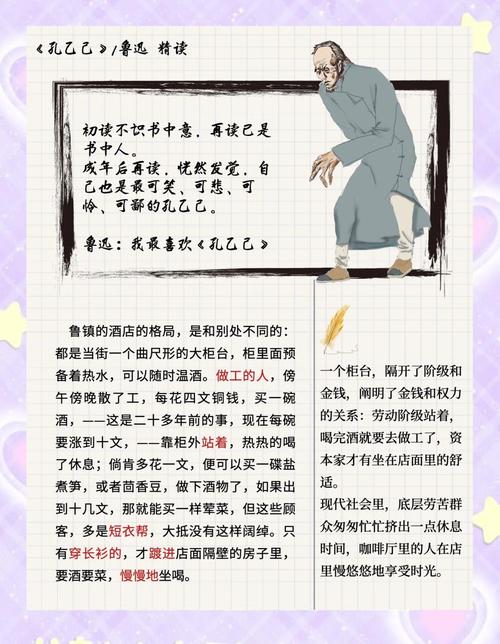 《孔乙己》/鲁迅 精读
初读不识书中意，再读已是
书中人。
成年后再读，恍然发觉，自
己也是最可笑、可悲、可
怜、可鄙的孔乙己。
鲁迅：我最喜欢《孔乙己》
鲁镇的酒店的格局，是和别处不同的：
都是当街一个曲尺形的大柜台，柜里面预
备着热水，可以随时温酒。做工的人，傍
午傍晚散了工，每花四文铜钱，买一碗
酒，——这是二十多年前的事，现在每碗
要涨到十文，——靠柜外站着，热热的喝
了休息；倘肯多花一文，便可以买一碟盐
煮笋，或者茴香豆，做下酒物了，如果出
到十几文，那就能买一样荤菜，但这些顾
客，多是短衣帮，大抵没有这样阔绰。只
有穿长衫的，才踱进店面隔壁的房子里，
要酒要菜，慢慢地坐喝。
一个柜台，隔开了阶级和
金钱，阐明了金钱和权力
的关系：劳动阶级站着，
喝完酒就要去做工了，资
本家才有坐在店面里的舒
适。
现代社会里，底层劳苦群
众匆匆忙忙挤出一点休息
时间，咖啡厅里的人在店
里慢悠悠地享受时光。